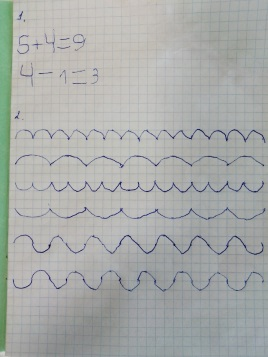 1.
5+4=9
4-1=3
2.